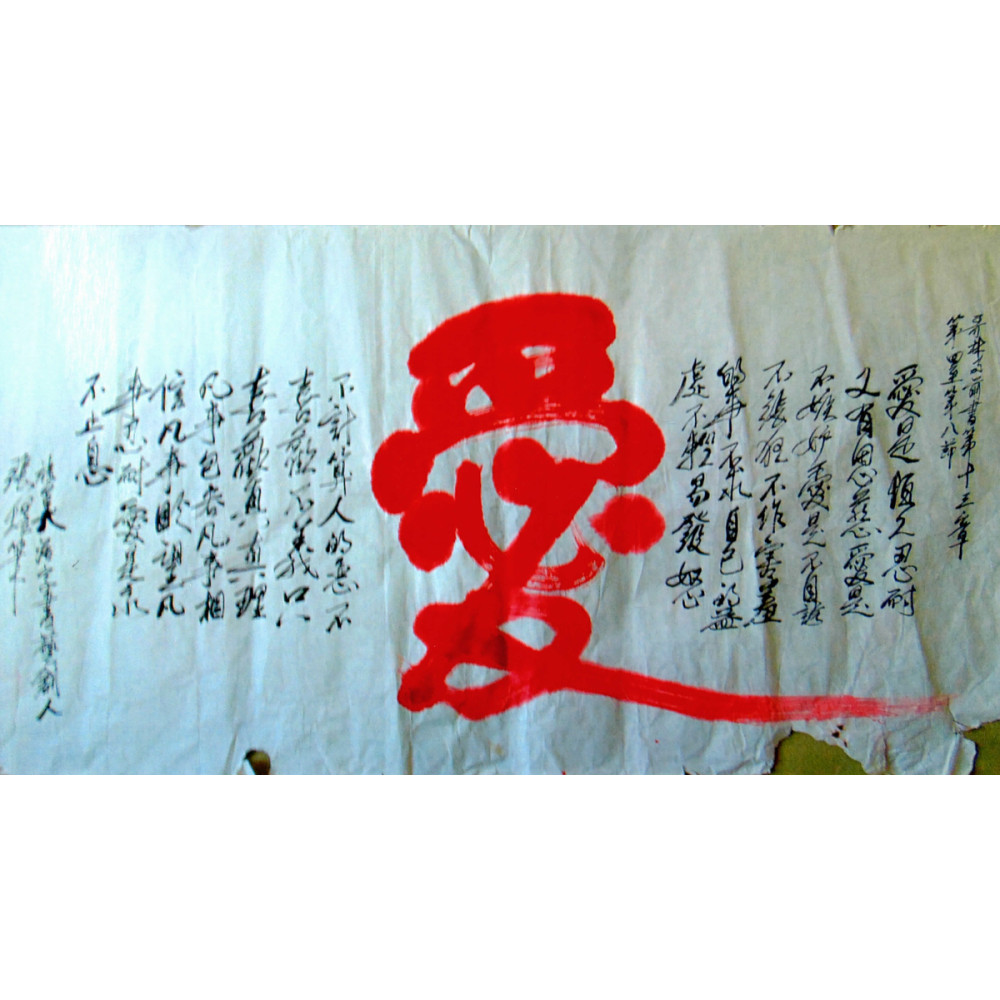 哥林多前書第十三章
第四至第八節
愛是恒久忍耐
又有恩慈愛是
不嫉妒愛是不自誇
不張狂不作害羞
的事不求自己的益
處不輕易發怒
愛
不計算人的惡不
喜歡不義只
喜歡真理
凡事包容凡事相
信凡事盼望凡
事忍耐愛是永
不止息